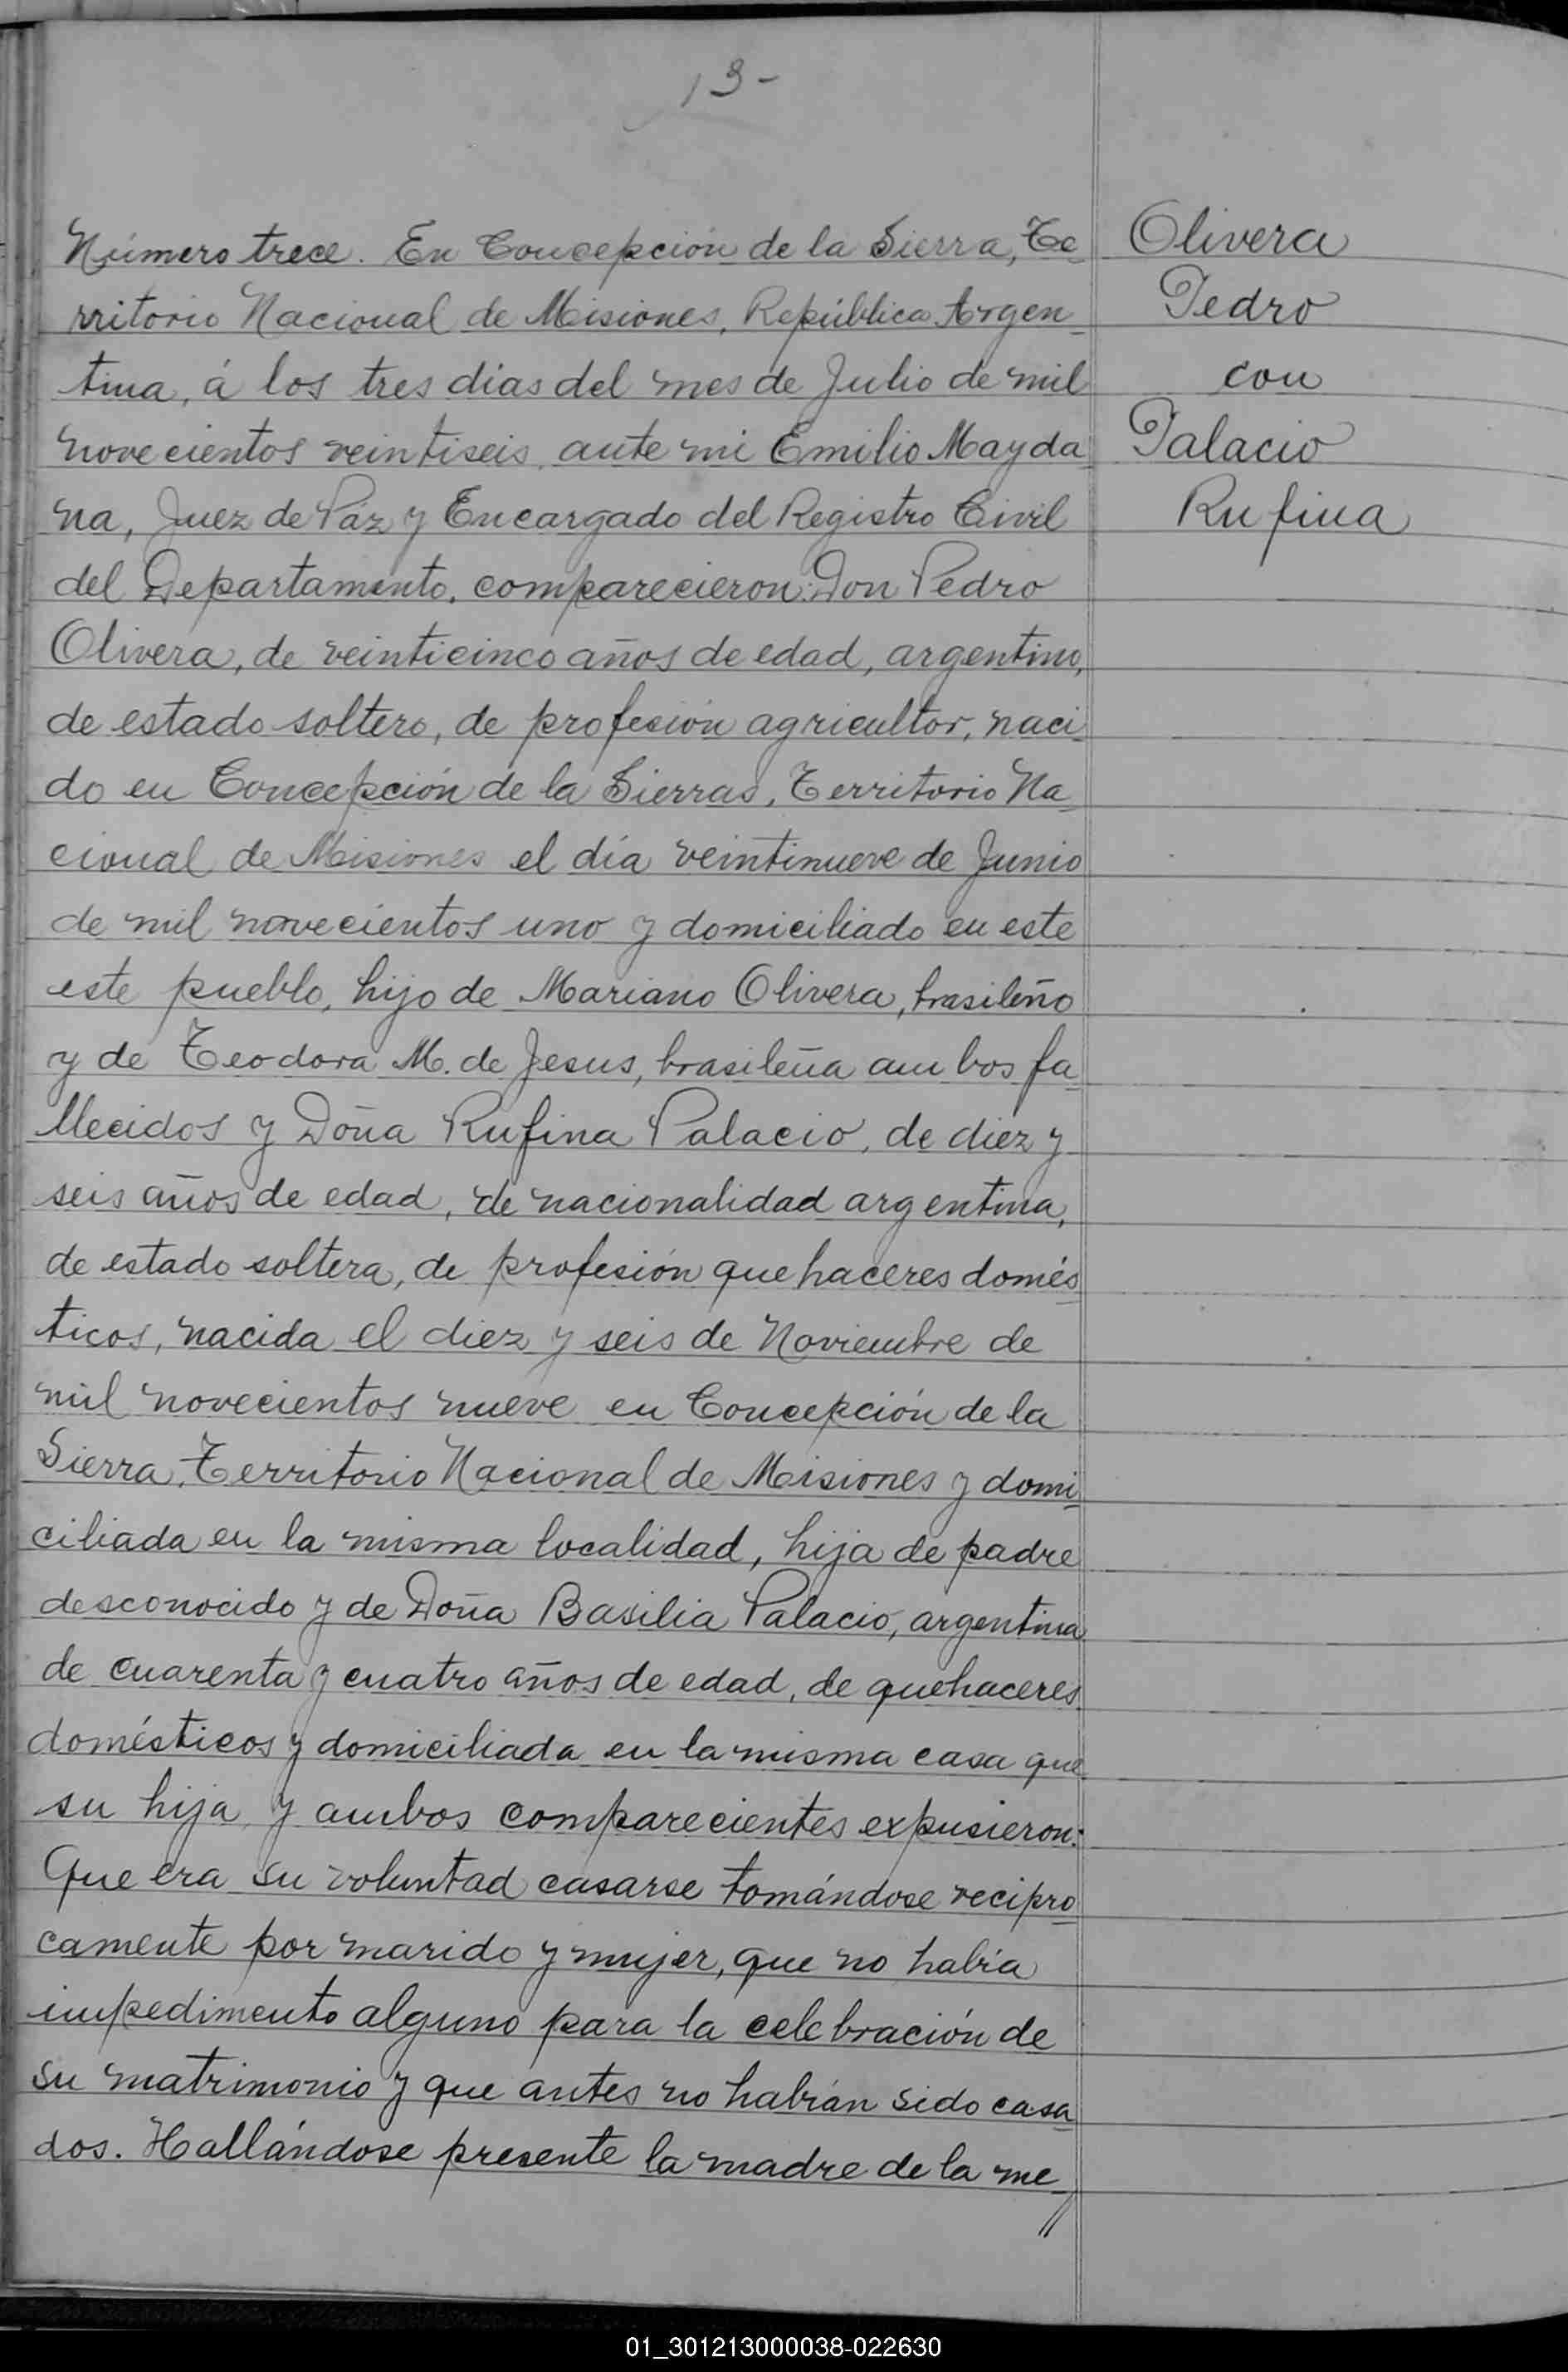 13-
Número trece. En Concepción de la Sierra, Te
rritorio Nacional de Misiones, República Argen
tina, á los tres dias del mes de Julio de mil
novecientos veintiseis, ante mi Emilio Mayda
na, Juez de Páz y Encargado del Registro Civil
del Departamento, comparecieron: Don Pedro
Olivera, de veinticinco años de edad, argentino,
de estado soltero, de profesión agricultor, naci
do en Concepción de la Sierras, Territorio Na
cional de Misiones el día veintinueve de Junio
de mil novecientos uno y domiciliado en este
este pueblo, hijo de Mariano Olivera, brasileño
y de Teodora M. de Jesus, brasileña ambos fa
llecidos y Doña Rufina Palacio, de diez y
seis años de edad, de nacionalidad argentina,
de estado soltera, de profesión quehaceres domés
ticos, nacida el diez y seis de Noviembre de
mil novecientos nueve en Concepción de la
Sierra, Territorio Nacional de Misiones y domi
ciliada en la misma localidad, hija de padre
desconocido y de Doña Basilia Palacio, argentina
de cuarenta y cuatro años de edad, de quehaceres
domésticos y domiciliada en la misma casa que
su hija, y ambos comparecientes expusieron:
Que era su voluntad casarse tomándose recipro
camente por marido y mujer, que no había
impedimento alguno para la celebración de
su matrimonio y que antes no habían sido casa
dos. Hallándose presente la madre de la me
//
Olivera
Pedro
con
Palacio
Rufina
01_301213000038-022630